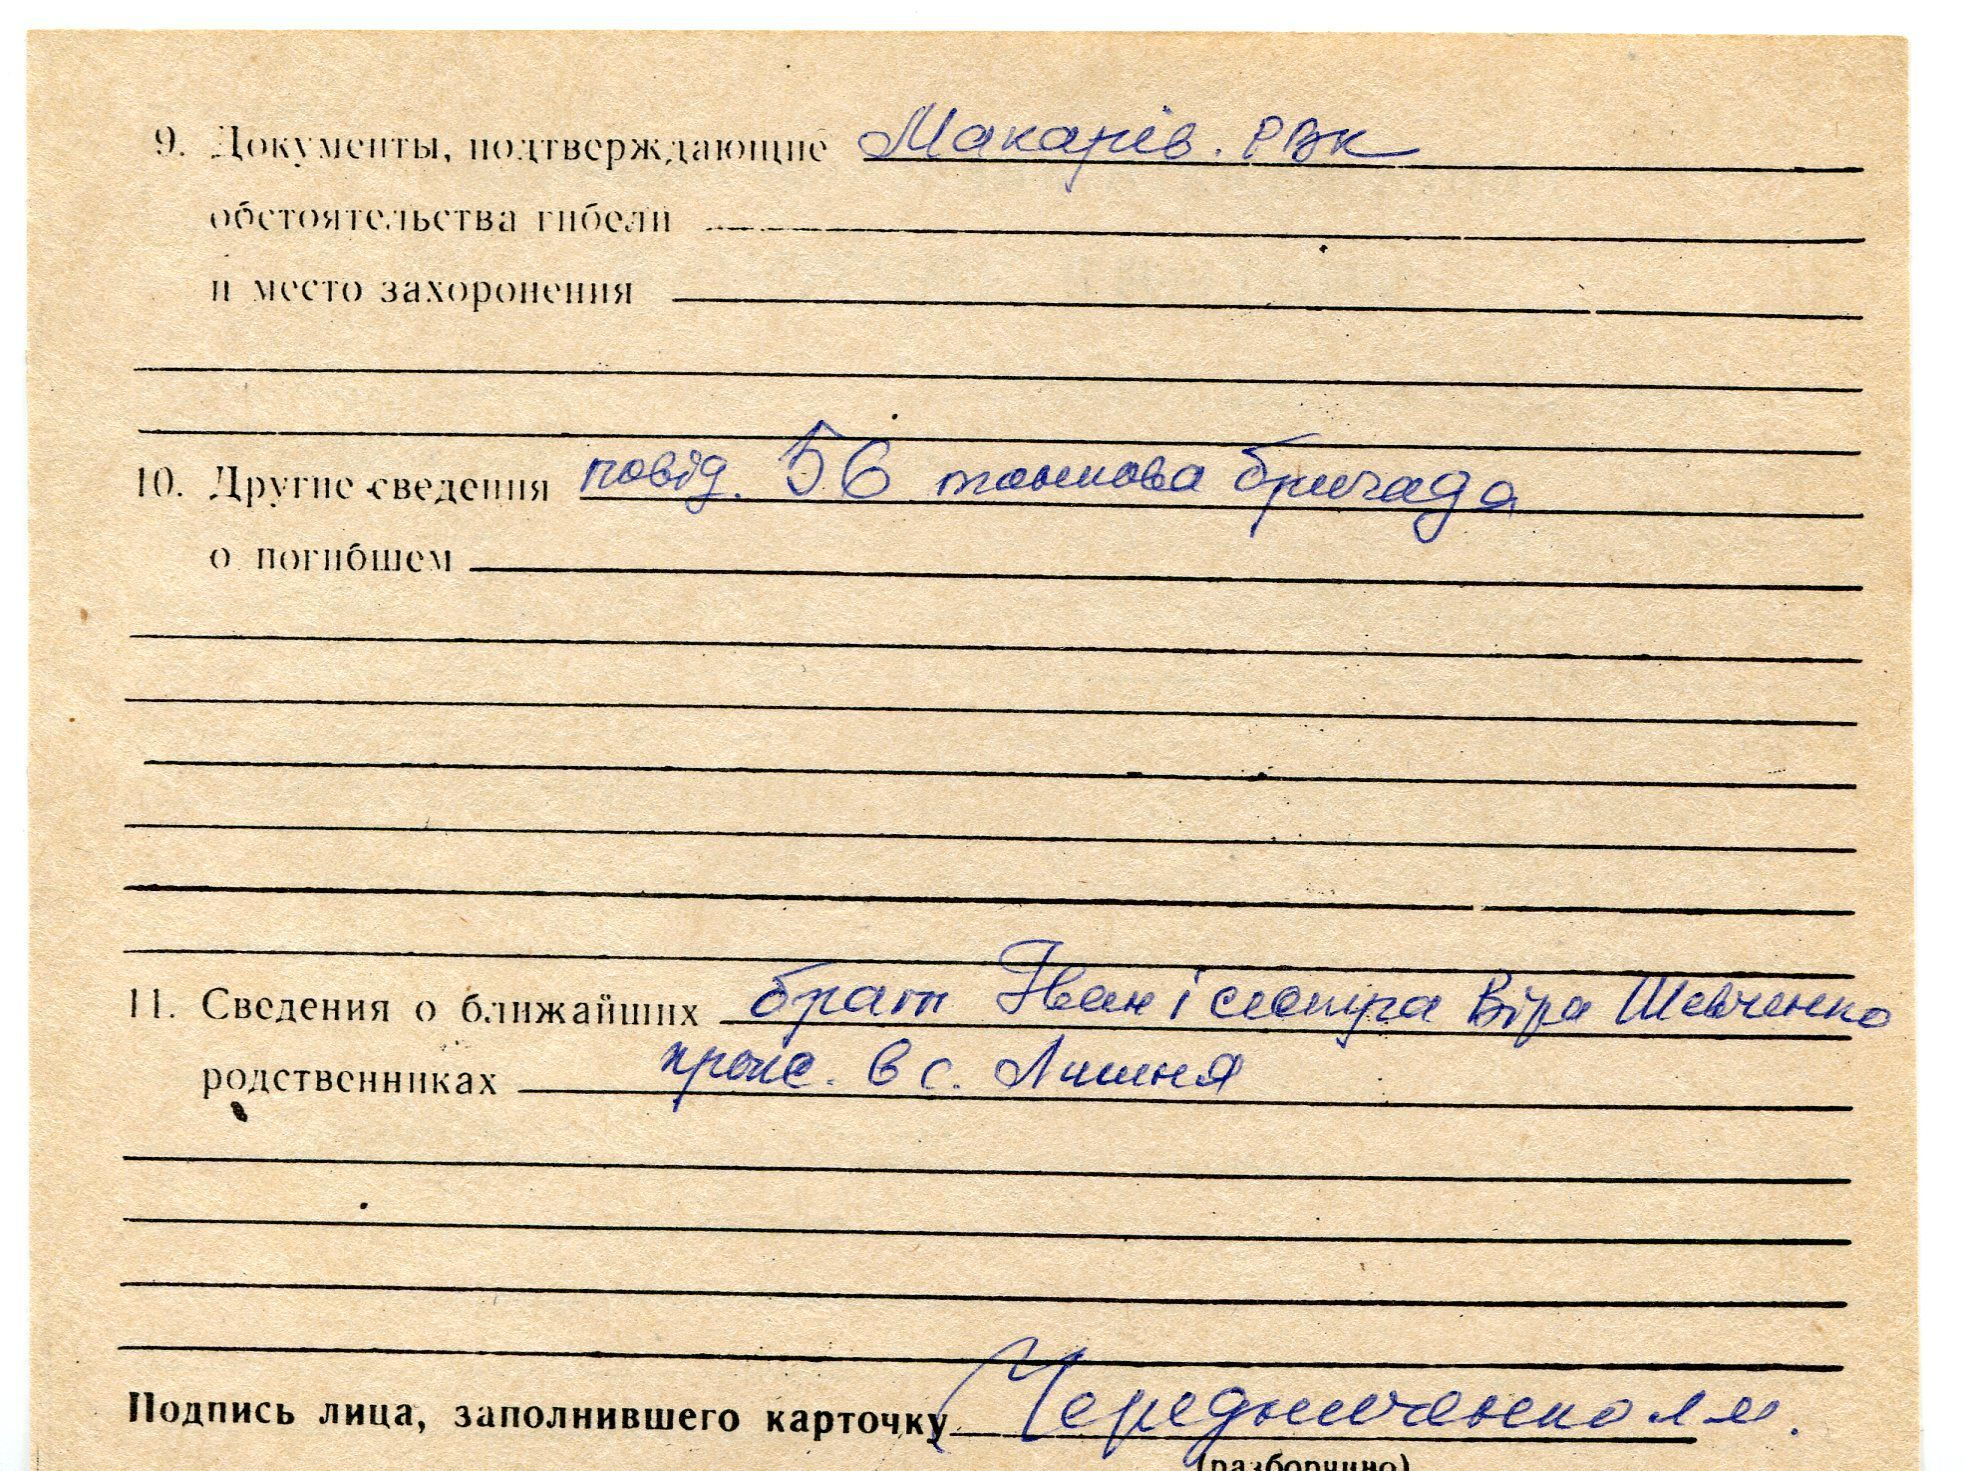 9. Документы, подтверждающие Макарів. РВК
обстоятельства гибели
и место захоронения
10. Другие сведения повід. 56 танкова бригада
о погибшем
11. Сведения о ближайших брат Іван і сестра Віра Шевченко
родственниках прож. в с. Липня
Подпись лица, заполнившего карточку Чередниченко
(разборчиво)